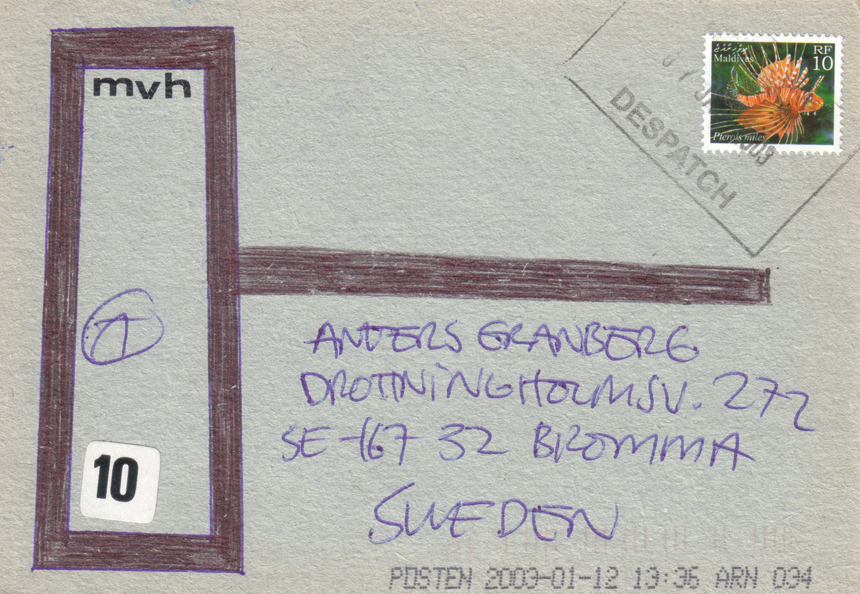 mvh
ދިވެހިރާއްޖެ
Maldives
RF
10
Pterois miles
2003
DESPATCH
ANDERS GRANBERG
DROTTNINGHOLMSV. 272
SE-167 32 BROMMA
SWEDEN
10
POSTEN 2003-01-12 19:36 ARN 094